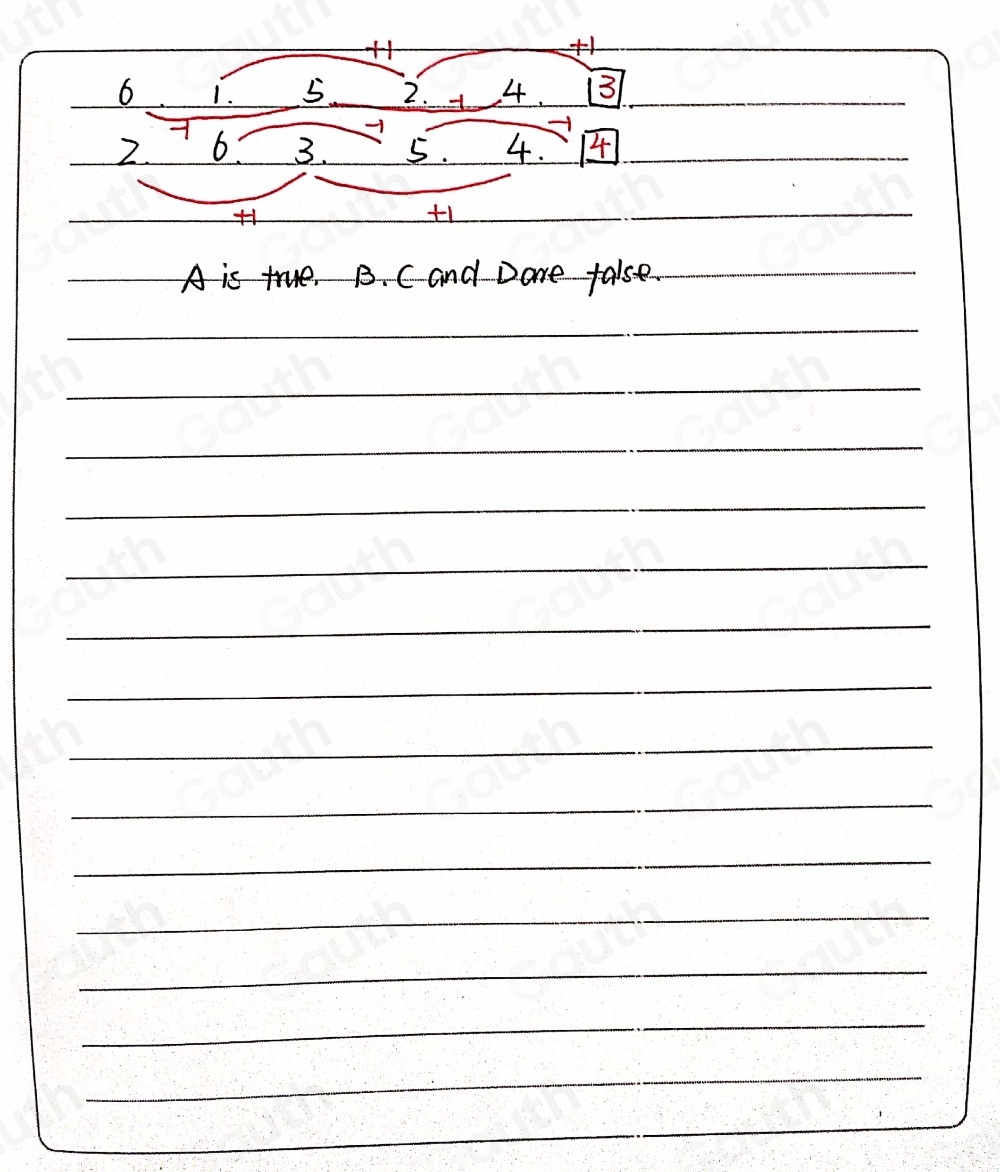 +1 +1
6. 1. 5. 2. 4. 3.
-1 -1
-1 -1
2. 6. 3. 5. 4. 4
+1 +1
A is true. B. C and D are false.